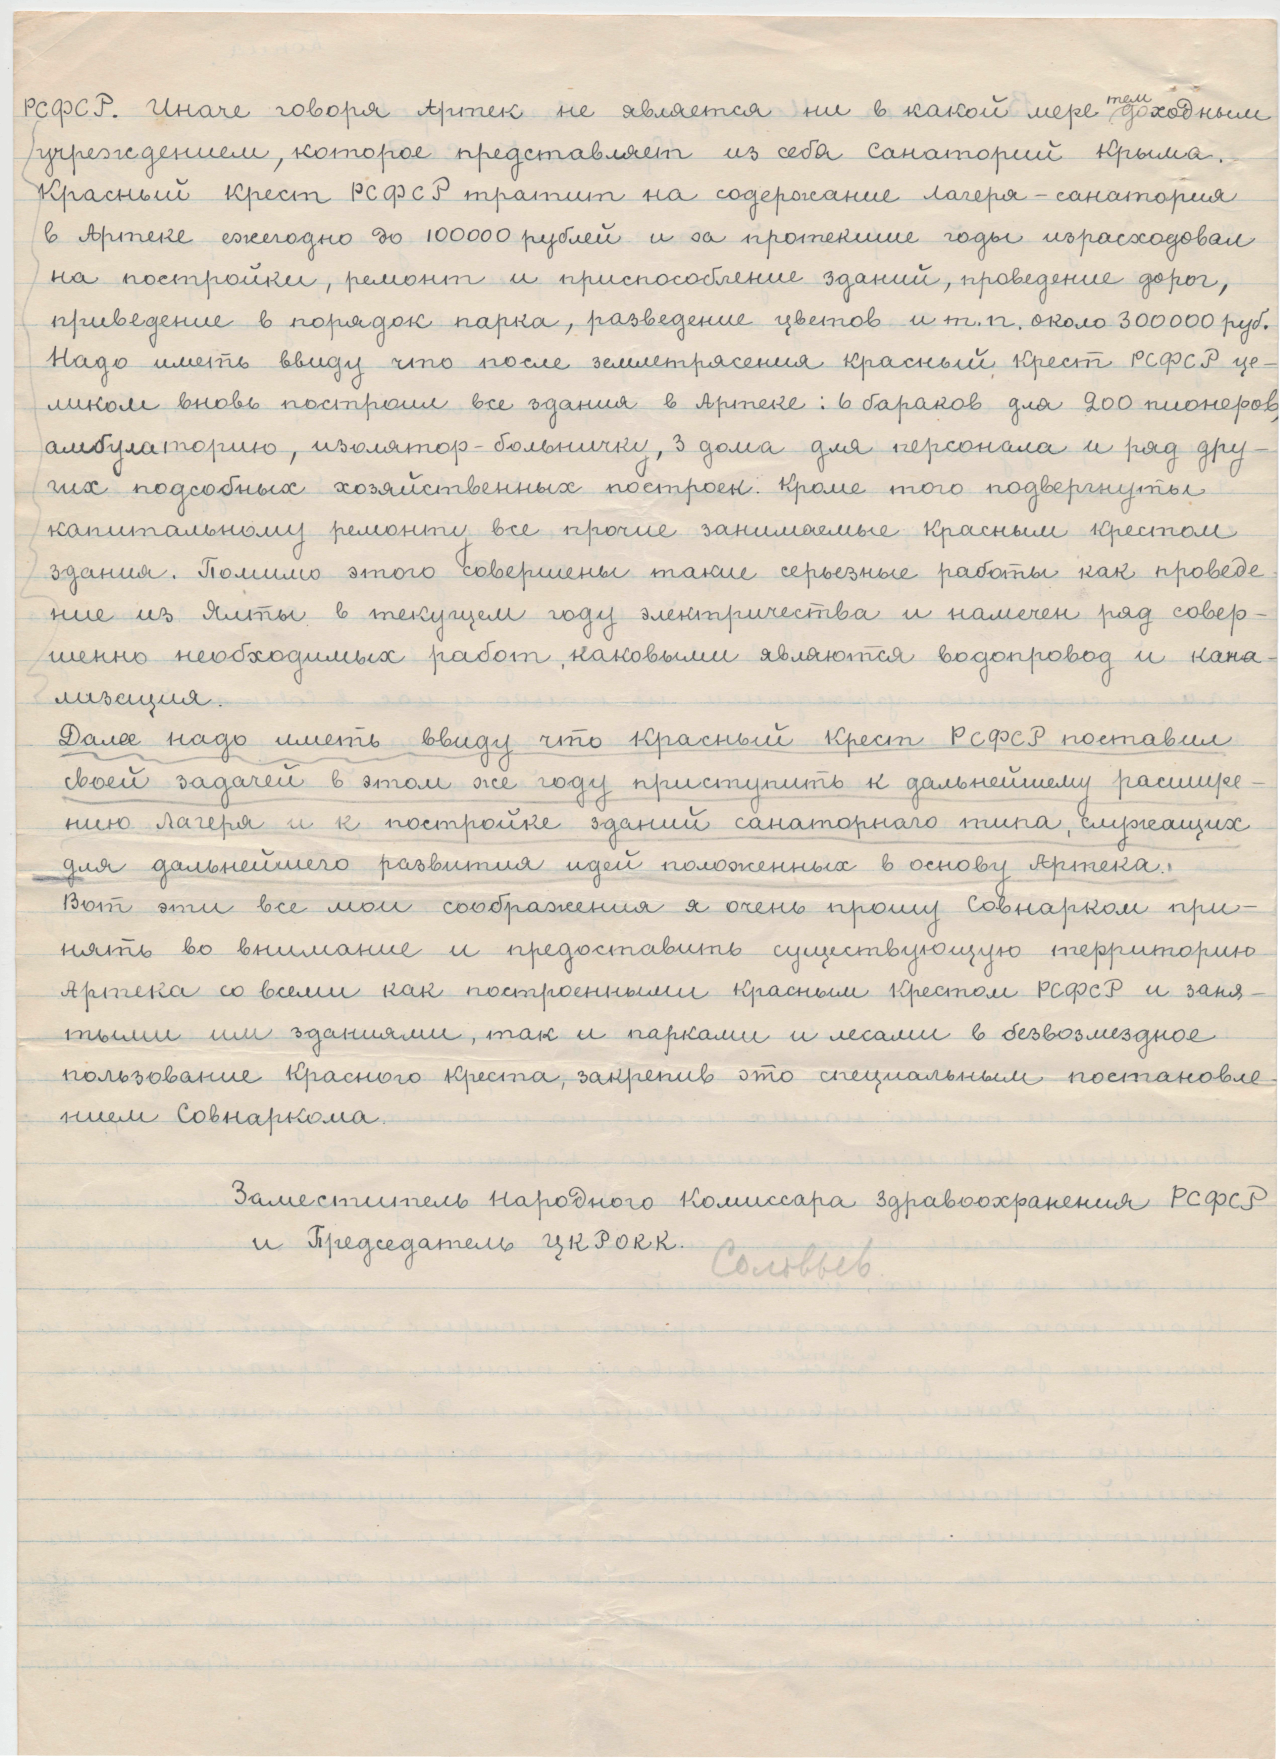 РСФСР. Иначе говоря Артек не является ни в какой мере тем доходным
учреждением, которое представляет из себя санаторий Крыма.
Красный Крест РСФСР тратит на содержание лагеря-санатория
в Артеке ежегодно до 100000 рублей и за протекшие годы израсходовал
на постройки, ремонт и приспособление зданий, проведение дорог,
приведение в порядок парка, разведение цветов и т.п. около 300000 руб.
Надо иметь ввиду что после землетрясения Красный Крест РСФСР це-
ликом вновь построил все здания в Артеке: 6 бараков для 200 пионеров,
амбулаторию, изолятор-больничку, 3 дома для персонала и ряд дру-
гих подсобных хозяйственных построек. Кроме того подвергнуты
капитальному ремонту все прочие занимаемые Красным Крестом
здания. Помимо этого совершены такие серьезные работы как проведе
ние из Ялты в текущем году электричества и намечен ряд совер-
шенно необходимых работ, каковыми являются водопровод и кана-
лизация.
Далее надо иметь ввиду что Красный Крест РСФСР поставил
своей задачей в этом же году приступить к дальнейшему расшире-
нию Лагеря и к постройке зданий санаторного типа, служащих
для дальнейшего развития идей положенных в основу Артека.
Вот эти все мои соображения я очень прошу Совнарком при-
нять во внимание и предоставить существующую территорию
Артека со всеми как построенными Красным Крестом РСФСР и заня-
тыми им зданиями, так и парками и лесами в безвозмездное
пользование Красного Креста, закрепив это специальным постановле-
нием Совнаркома.
Заместитель Народного Комиссара Здравоохранения РСФСР
и Председатель ЦК РОКК.
Соловьев.